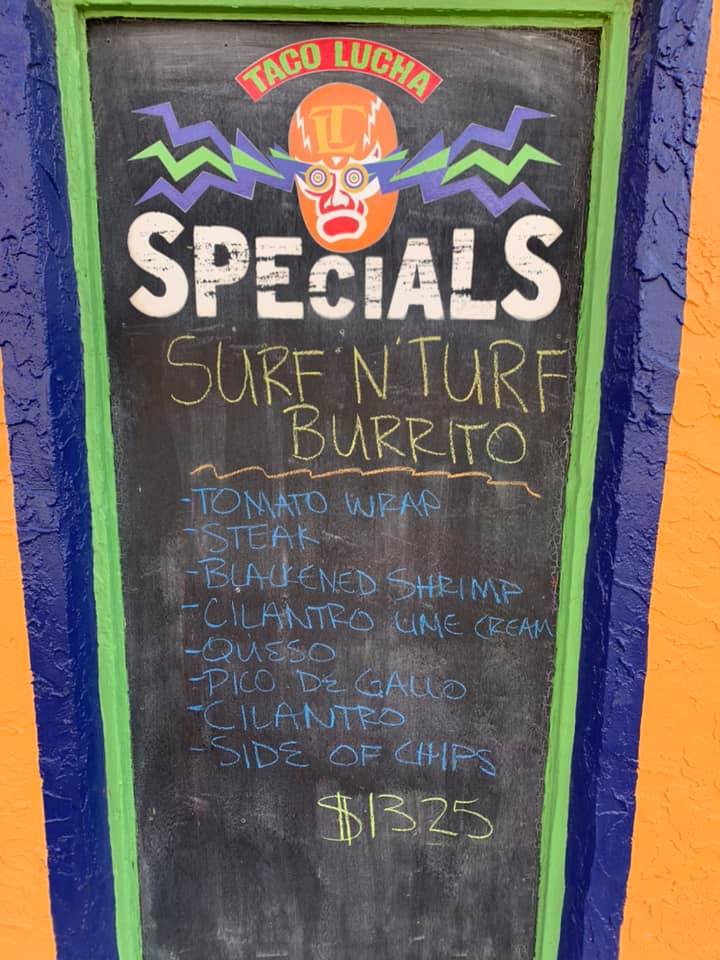 TACO LUCHA
LT
SPECiALS
SURF 'N' TURF
BURRITO
-TOMATO WRAP
-STEAK
-BLACKENED SHRIMP
-CILANTRO LIME CREAM
-QUESO
-PICO DE GALLO
-CILANTRO
-SIDE OF CHIPS
$13.25